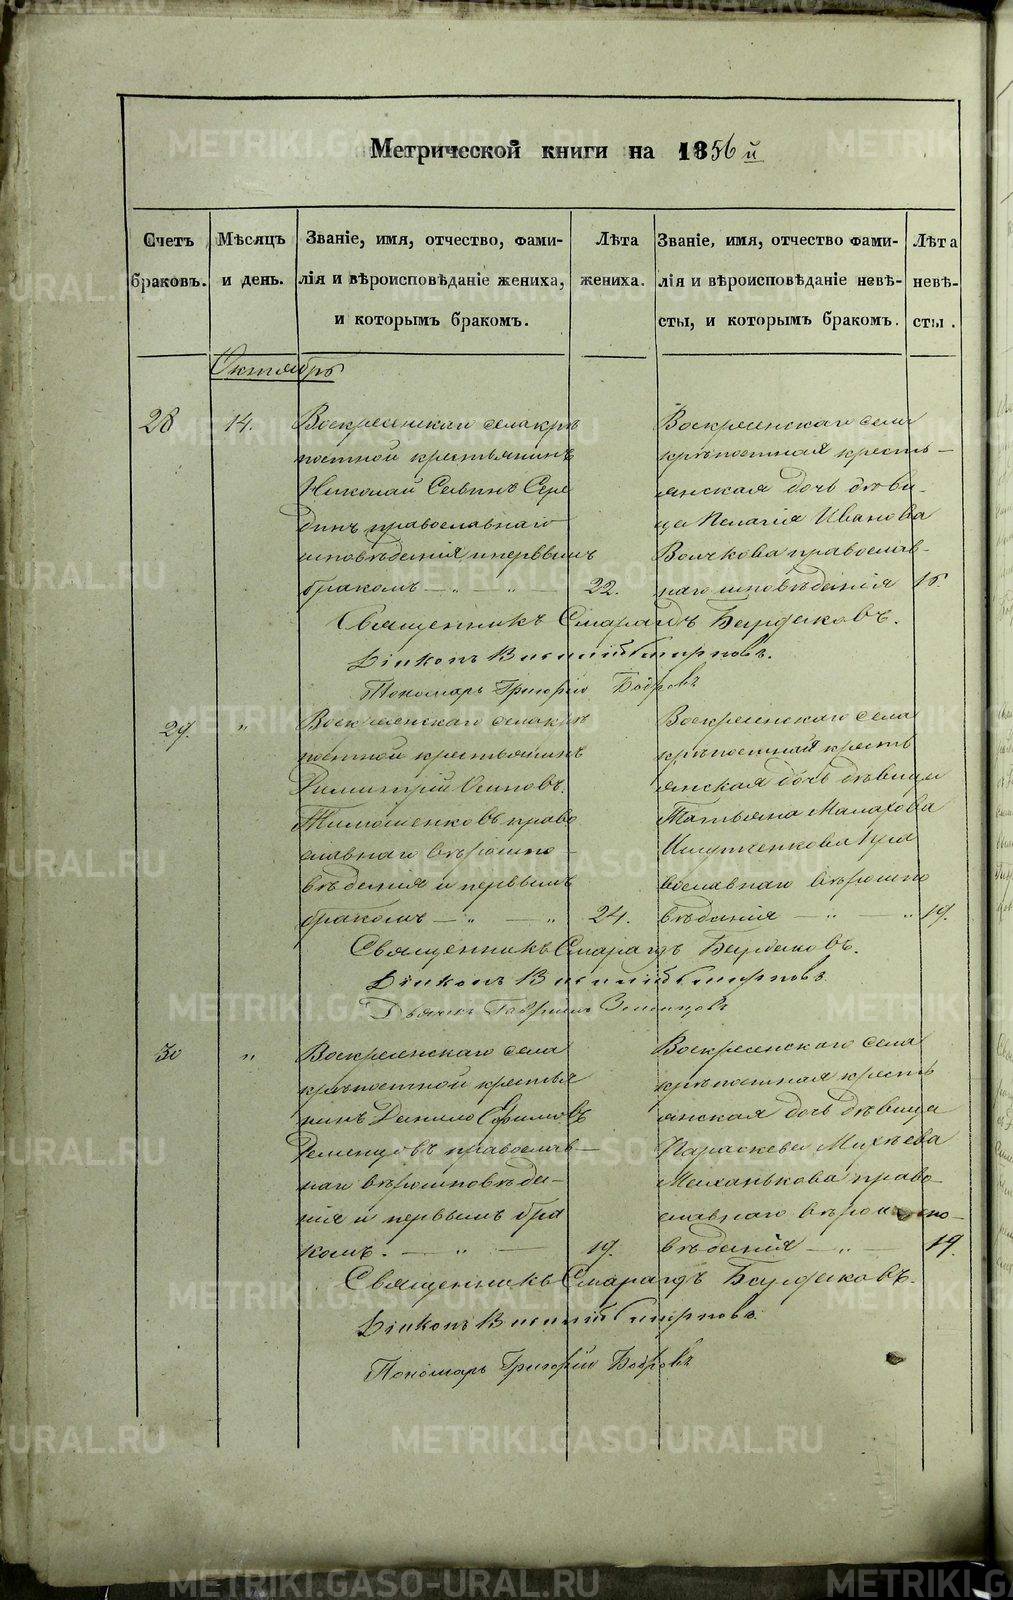 Метрической книги на 1856й
Счетъ браковъ.
Мѣсяцъ и день.
Званіе, имя, отчество, фами-
лія и вѣроисповѣданіе жениха,
и которымъ бракомъ.
Лѣта жениха.
Званіе, имя, отчество фами-
лія и вѣроисповѣданіе невѣ-
сты, и которымъ бракомъ.
Лѣта невѣ-
сты.
Октябрь
28
14.
Воскресенскаго села крѣ
постной крестьянинъ
Николай Савинъ Сере
динъ православнаго
исповѣданія и первымъ
бракомъ — „ — „ —
22.
Воскресенскаго села
крѣпостная кресть—
янская дочь дѣви-
ца Пелагія Иванова
Волчкова православ-
наго исповѣданія
Священникъ Смарагдъ Бардаковъ.
Діаконъ Смирновъ.
Пономарь Григорій Бобровъ
29.
„
Воскресенскаго села крѣ
постной крестьянинъ
Димитрій Осиповъ.
Тимошенковъ право
славнаго вѣроиспо—
вѣданія и первымъ
бракомъ — „ — „
24.
Воскресенскаго села
крѣпостная кресть
янская дочь дѣвица
Татьяна Малахова
пра
вославнаго вѣроиспо
вѣданія — „ — „
19.
Священникъ Смарагдъ Бардаковъ.
Діаконъ Смирновъ
Дьячекъ Гавріилъ
30
„
Воскресенскаго села
крѣпостной крестья
нинъ Данило Ефимовъ
Ременцовъ православ—
наго вѣроисповѣда—
нія и первымъ бра
комъ. — „ —
19.
Воскресенского села
крѣпостная кресть
янская дочь дѣвица
Параскева Михѣева
Механькова право-
славнаго вѣроиспо—
вѣданія — „ —
19.
Священникъ Смарагдъ Бардаковъ.
Діаконъ Смирновъ
Пономарь Григорій Бобровъ
METRIKI.GASO-URAL.RU